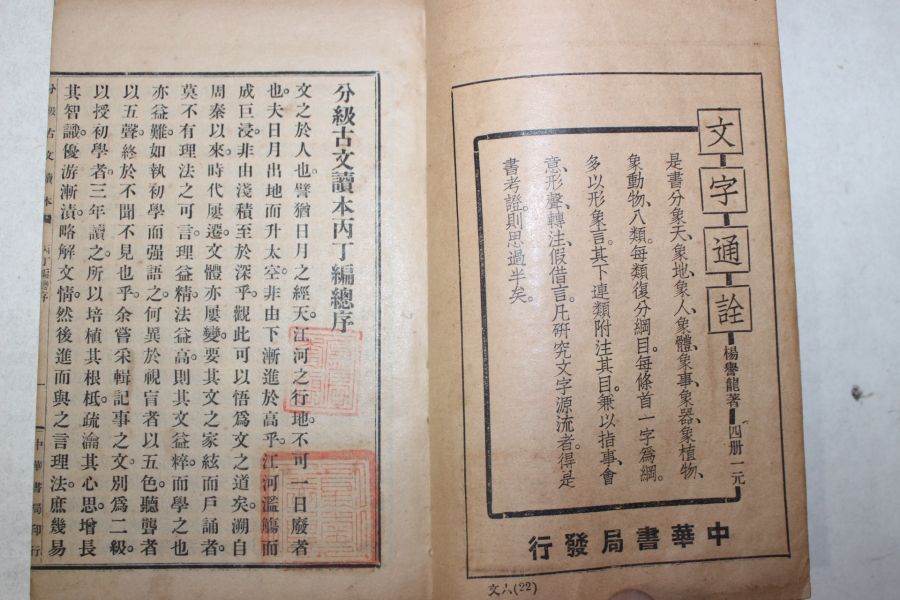 文字通詮
楊譽龍著
四册一元
是書分象天、象地、象人、象體、象事、象器、象植物、
象動物、八類。每類復分綱目。每條首一字爲綱。
多以形象言。其下連類附注其目。兼以指事、會
意、形聲、轉注、假借言。凡硏究文字源流者。得是
書考證。則思過半矣。
中華書局發行
文六(22)
分級古文讀本丙丁編總序
文之於人也。譬猶日月之經天。江河之行地。不可一日廢者
也。夫日月出地而升太空。非由下漸進於高乎。江河濫觴而
成巨浸。非由淺積至於深乎。觀此可以悟爲文之道矣。溯自
周秦以來。時代屢遷。文體亦屢變。要其文之家絃而戶誦者。
莫不有理法之可言。理益精。法益高。則其文益粹。而學之也
亦益難。如執初學而强語之。何異於視盲者以五色。聽聾者
以五聲。終於不聞不見也乎。余嘗采輯記事之文。別爲二級。
以授初學者。三年讀之。所以培植其根柢。疏瀹其心思。增長
其智識。優游漸漬。略解文情。然後進而與之言理法。庶幾易
分級古文讀本
丙丁編總序
一
中華書局印行